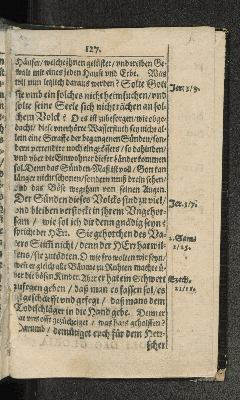 127.
Häuser/ welche ihnen gelüstet/ und treiben Ge-
walt mit eines jeden Hause und Erbe. Was
wil nun letzlich daraus werden? Solte Gott
sie umb ein solches nicht heimsuchen/ und
solte seine Seele sich nicht rächen an sol-
chem Volck? O es ist zubesorgen/ wie obge-
dacht/ diese unerhörte Wasserfluth sey nicht al-
lein eine Straffe der begangenen Sünden/ son-
dern
noch eing
/ so dahinden/
und über die Einwohner dieser Länder kommen
sol. Denn das Sünden-Maß ist voll/ Gott kan
länger nicht schonen/ sondern muß drein sehen/
und das Böse wegthun von seinen Augen.
Der Sünden dieses Volcks sind zu viel/
und bleiben verstockt in ihrem Ungehor-
sam/ wie sol ich dir denn gnädig seyn?
spricht der HErr. Sie gehorchen des Va-
ters Stim nicht/ denn der HErr hat wil-
lens/ sie zu tödten. O wie fro wolten wir seyn/
wen er gleich alß
Bäume zu Ruhten machte ü-
ber die bösen Kinder. Aber er hat ein Schwert
zufegen geben/ daß man es fassen sol/ es
ist geschärfft und gefegt/ daß mans dem
Todtschläger in die Hand gebe. Denn er
hat uns offt gezüchtiget/ was hats geholffen?
Darumb/ demütiget euch für dem Her-
scher
Jer. 5/9.
Jer. 5/7.
1. Sam.
2/25.
Ezech.
21/11.